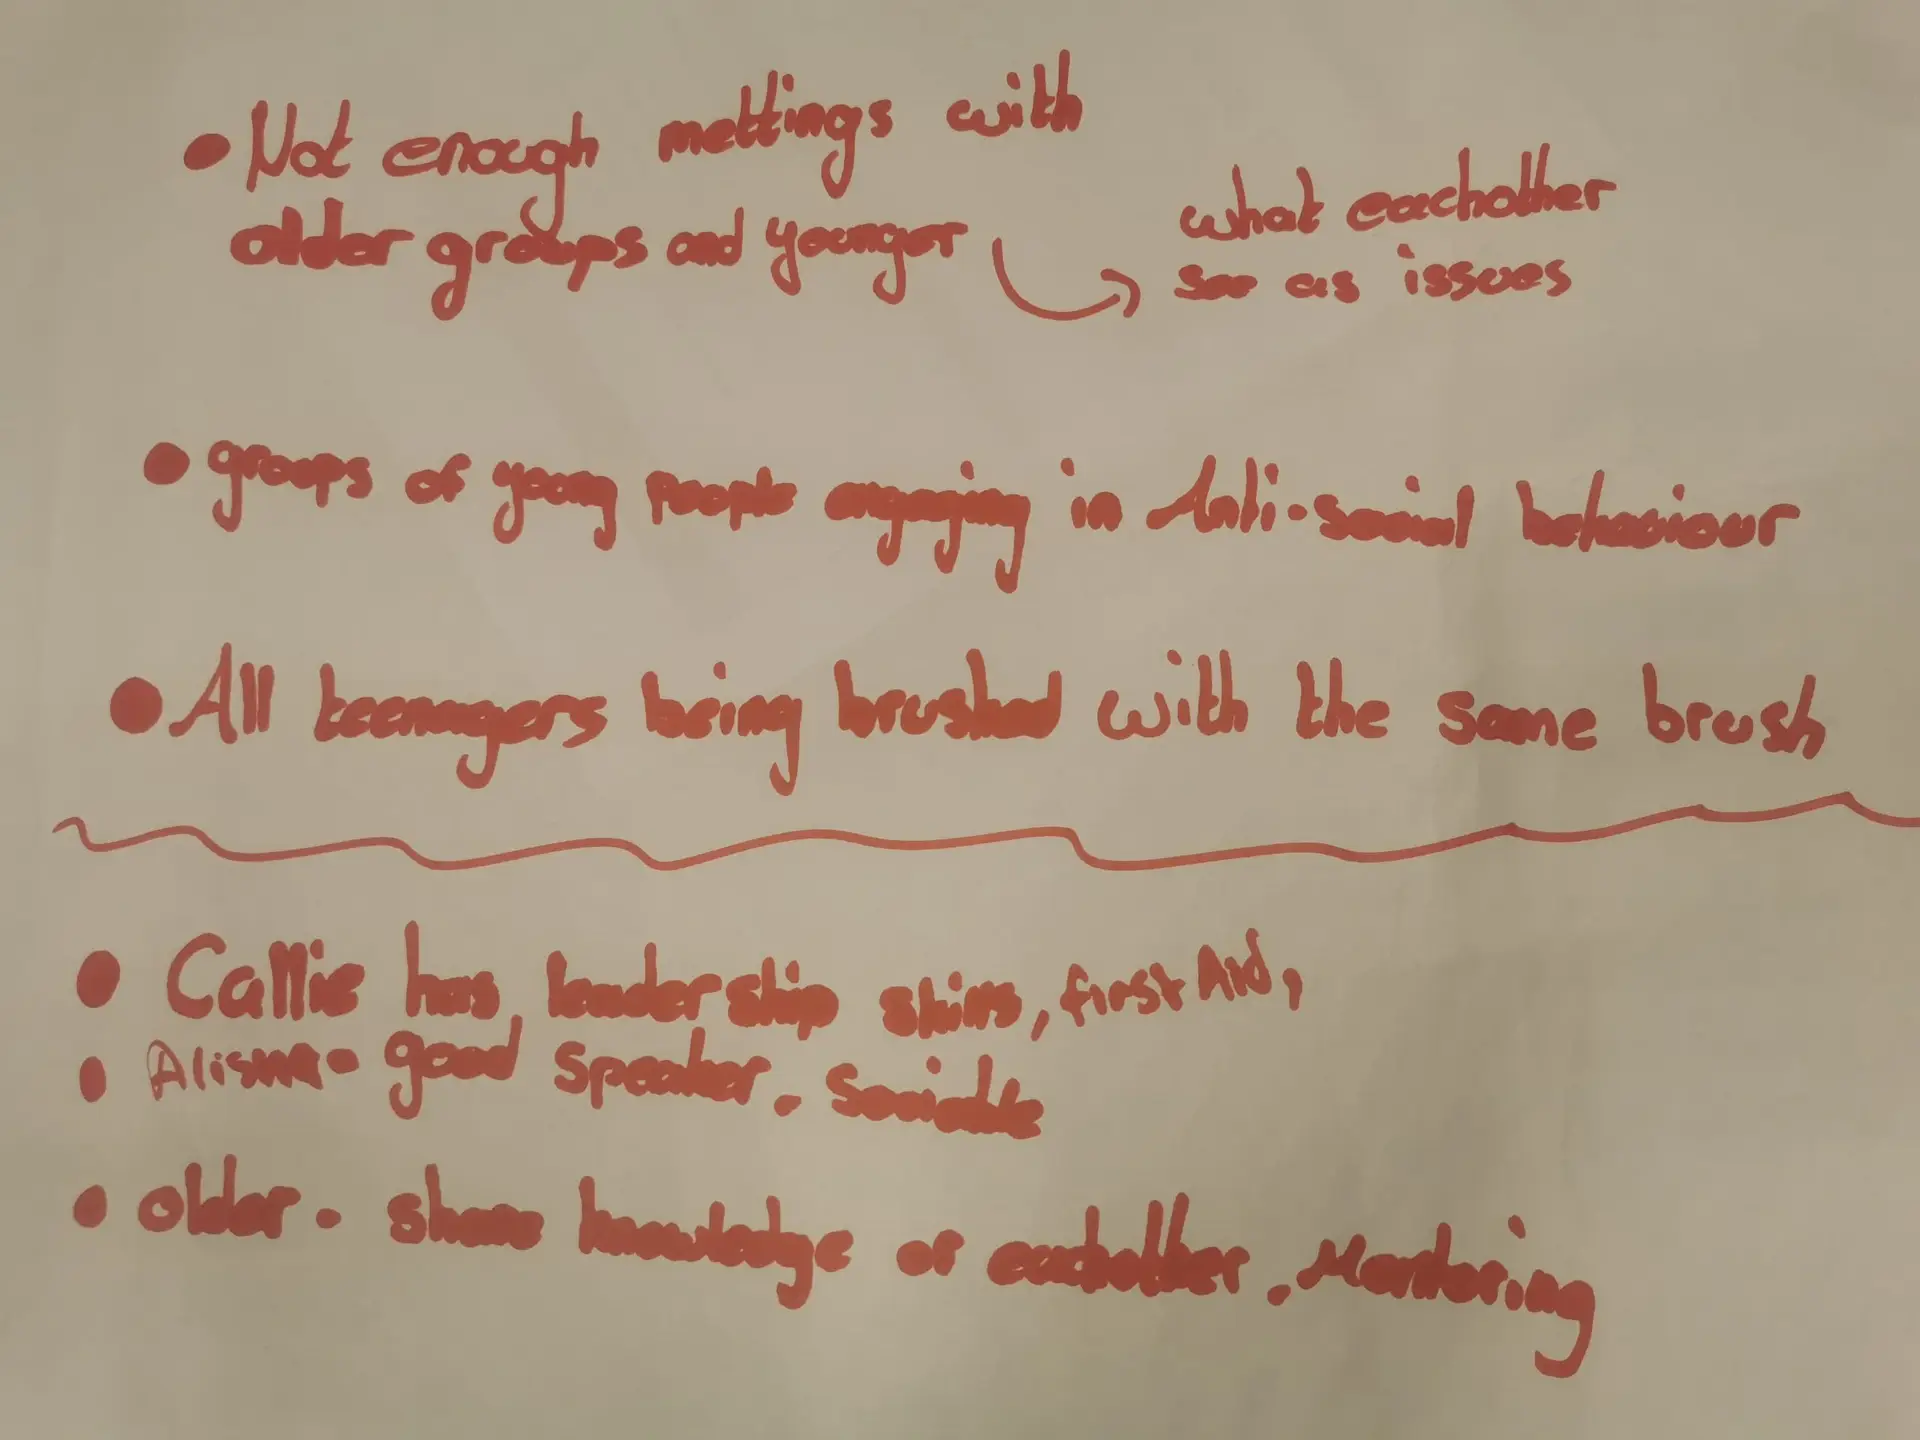 • Not enough mettings with
older groups and younger
what eachother
see as issues
• groups of young people engaging in Anti-social behaviour
• All teenagers being brushed with the same brush
• Callie has leadership skills, first AID,
• good speaker. Sociable
• older - share knowledge of eachother. Mentoring